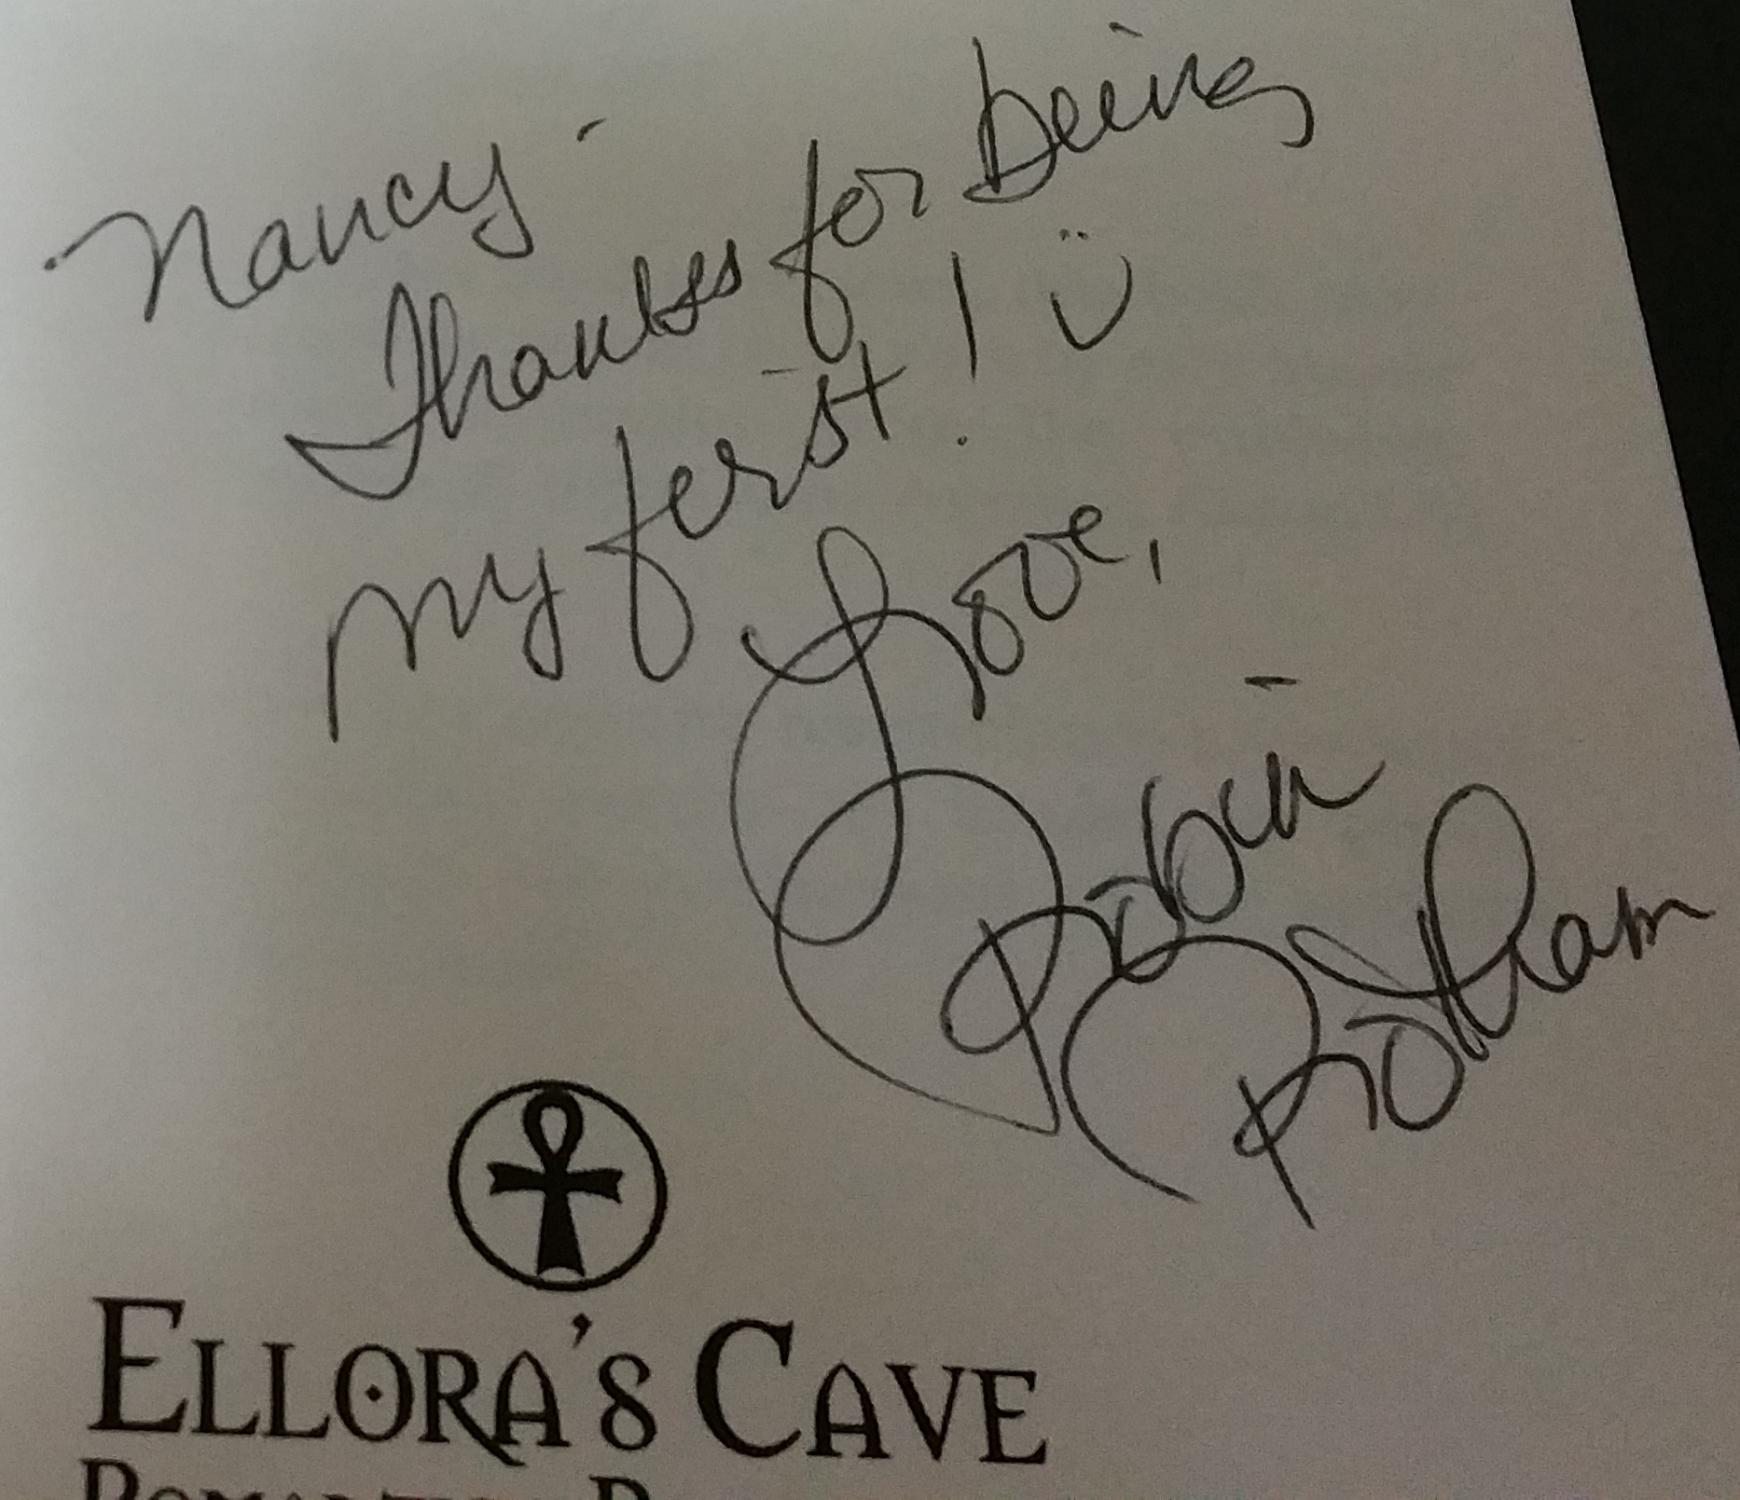 Nancy -
Thanks for being
my first! Ü
Love,
Robin
Rotham
ELLORA'S CAVE